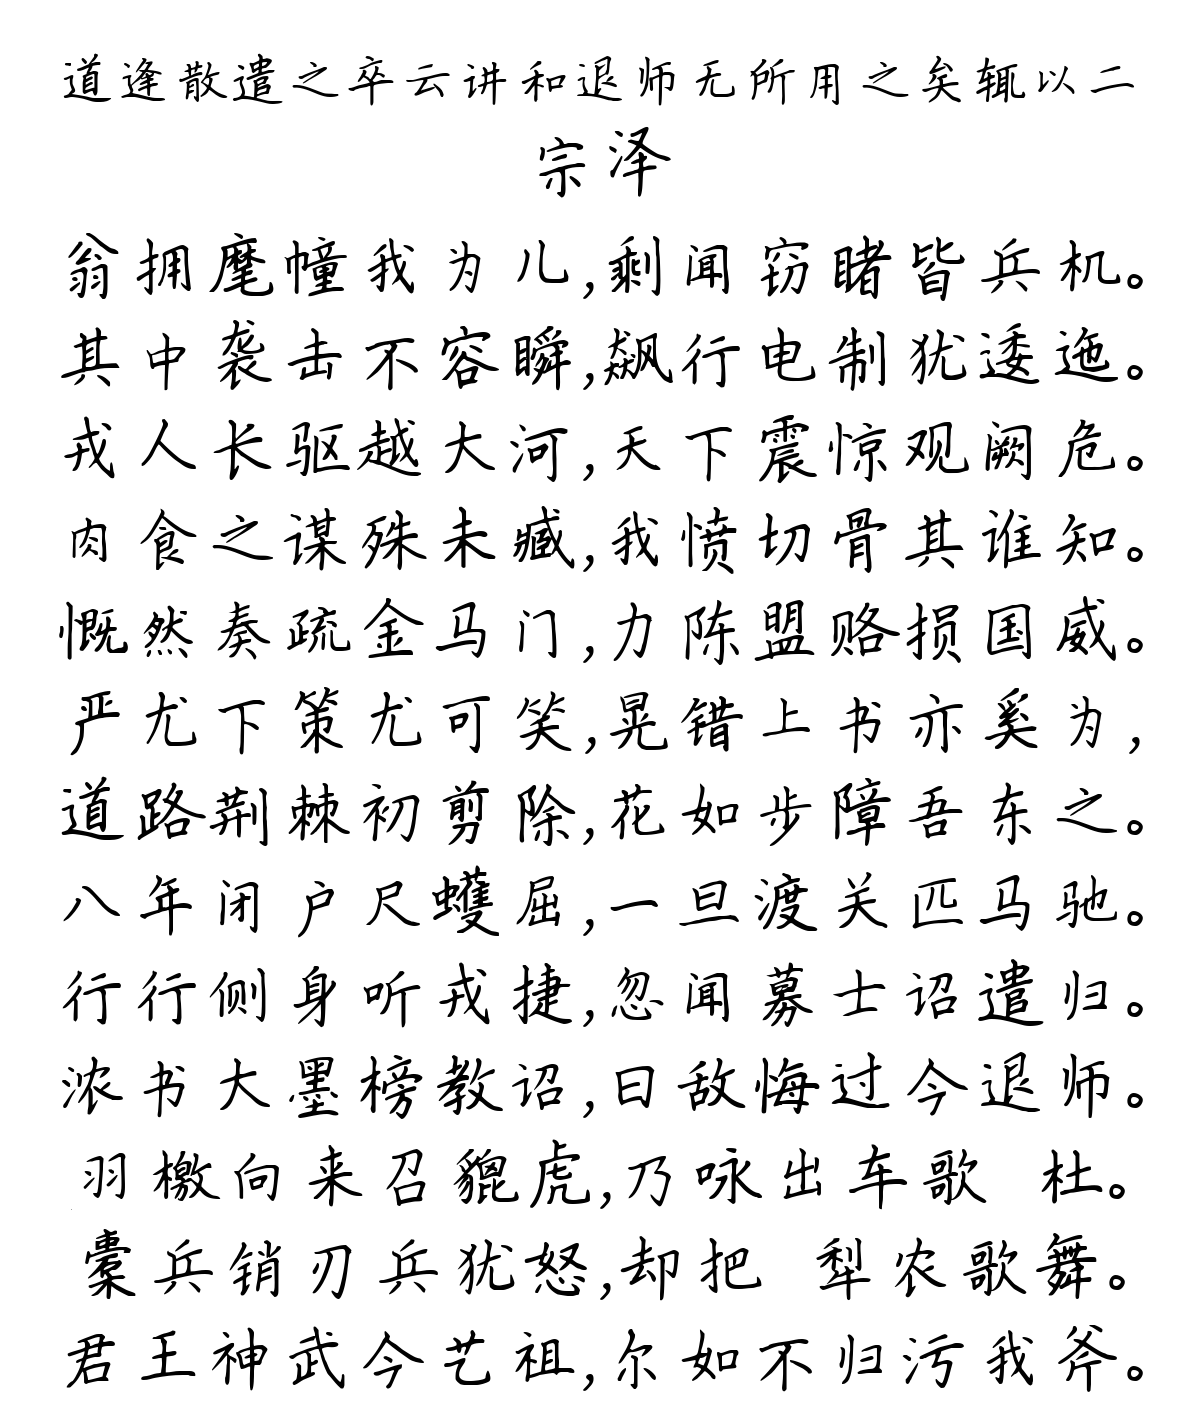 道逢散遣之卒云讲和退师无所用之矣辄以二
宗泽
翁拥麾幢我为儿,剩闻窃睹皆兵机。
其中袭击不容瞬,飙行电制犹逶迤。
戎人长驱越大河,天下震惊观阙危。
肉食之谋殊未臧,我愤切骨其谁知。
慨然奏疏金马门,力陈盟赂损国威。
严尤下策尤可笑,晃错上书亦奚为,
道路荆棘初剪除,花如步障吾东之。
八年闭户尺蠖屈,一旦渡关匹马驰。
行行侧身听戎捷,忽闻募士诏遣归。
浓书大墨榜教诏,曰敌悔过今退师。
羽檄向来召貔虎,乃咏出车歌 杜。
橐兵销刃兵犹怒,却把 犁农歌舞。
君王神武今艺祖,尔如不归污我斧。